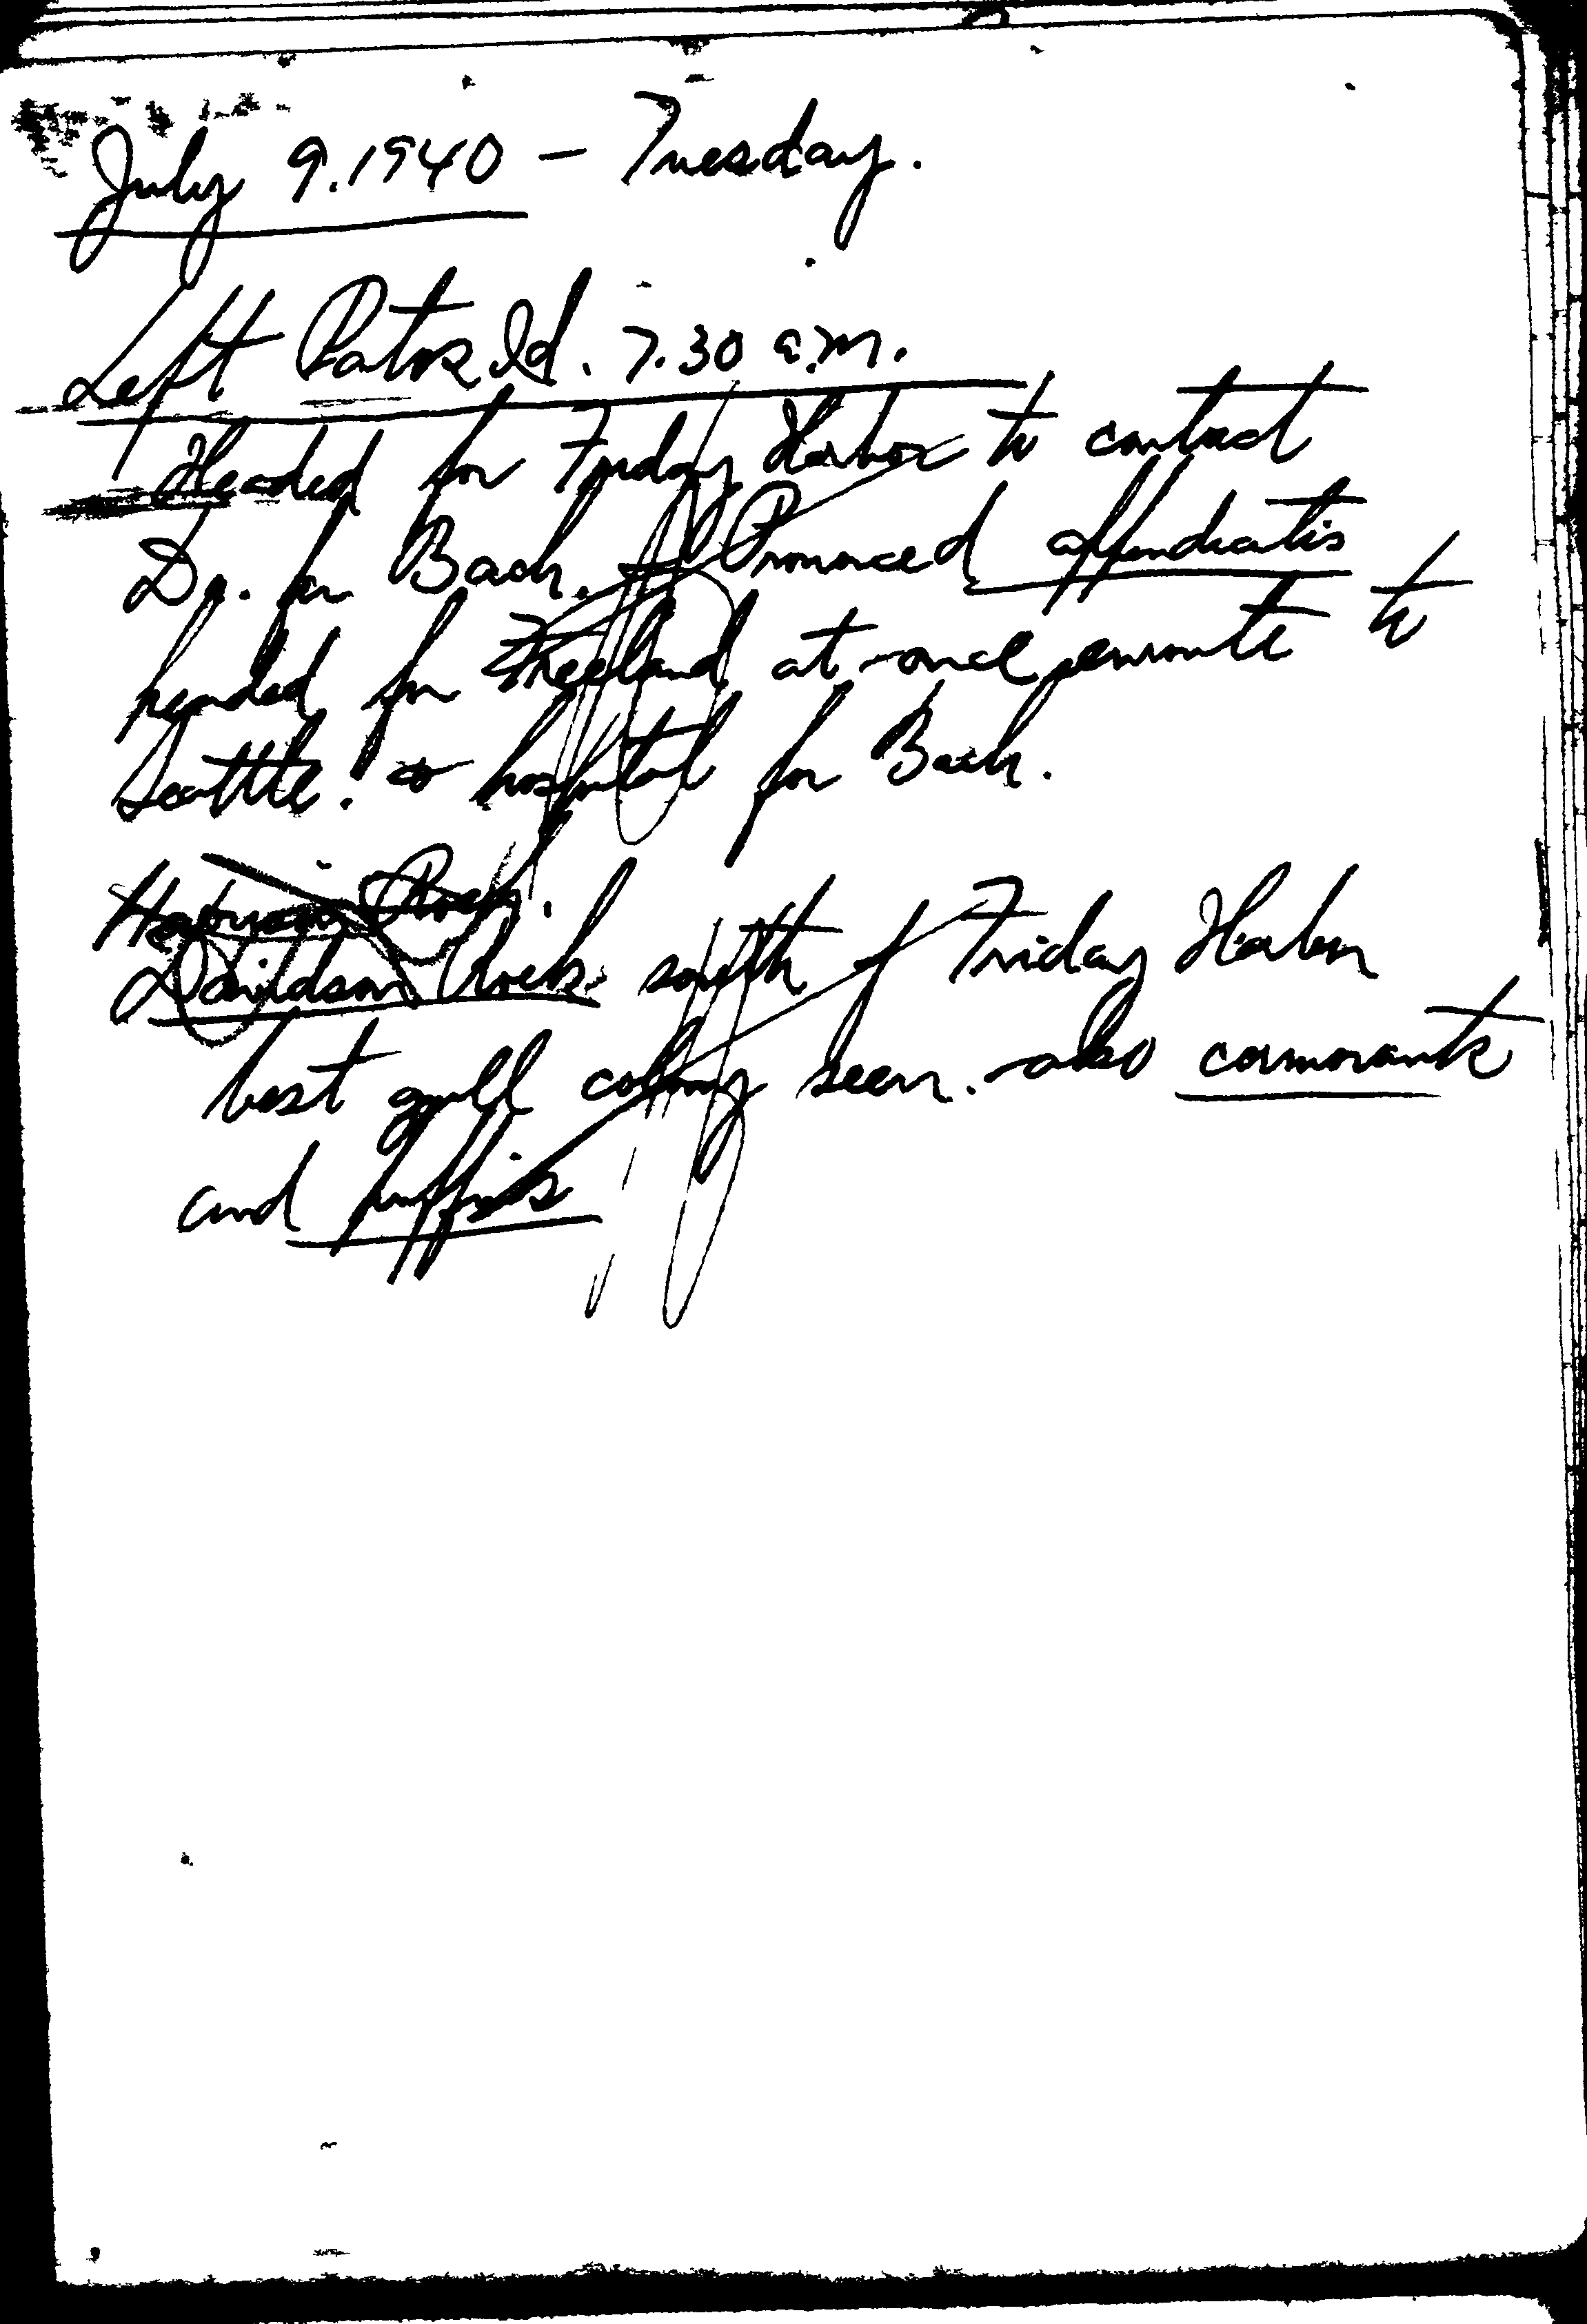 July 9. 1940 – Tuesday.
Left Patos Id. 7.30 a.m.
Headed for Friday Harbor to contact
Dr. for Bach. Pronounced appendicatis
headed for Freeland at once enroute to
Seattle. & hospital for Bach.
Rock.
Davidson Rock south of Friday Harbor
best gull colony seen. also cormorants
and puffins